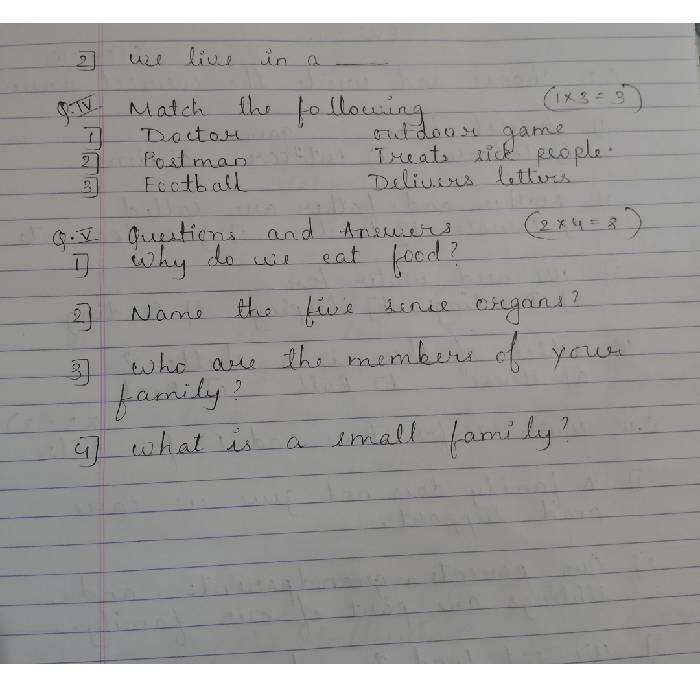 2] we live in a ___
Q.IV. Match the following (1×3=3)
1] Doctor outdoor game
2] Postman Treats sick people.
3] Football Delivers letters
Q.V. Questions and Answers (2×4=8)
1] Why do we eat food?
2] Name the five sense organs?
3] who are the members of your
family?
4] what is a small family?